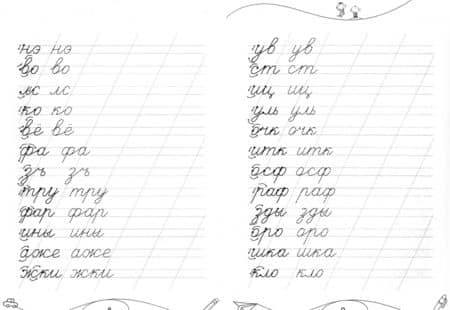 нэ нэ
во во
лс лс
ко ко
вё вё
фа фа
зъ зъ
тру тру
фар фар
ины ины
аже аже
жки жки
ув ув
ст ст
щ щ
уль уль
очк очк
итк итк
осф осф
раф раф
зды зды
оро оро
шка шка
кло кло